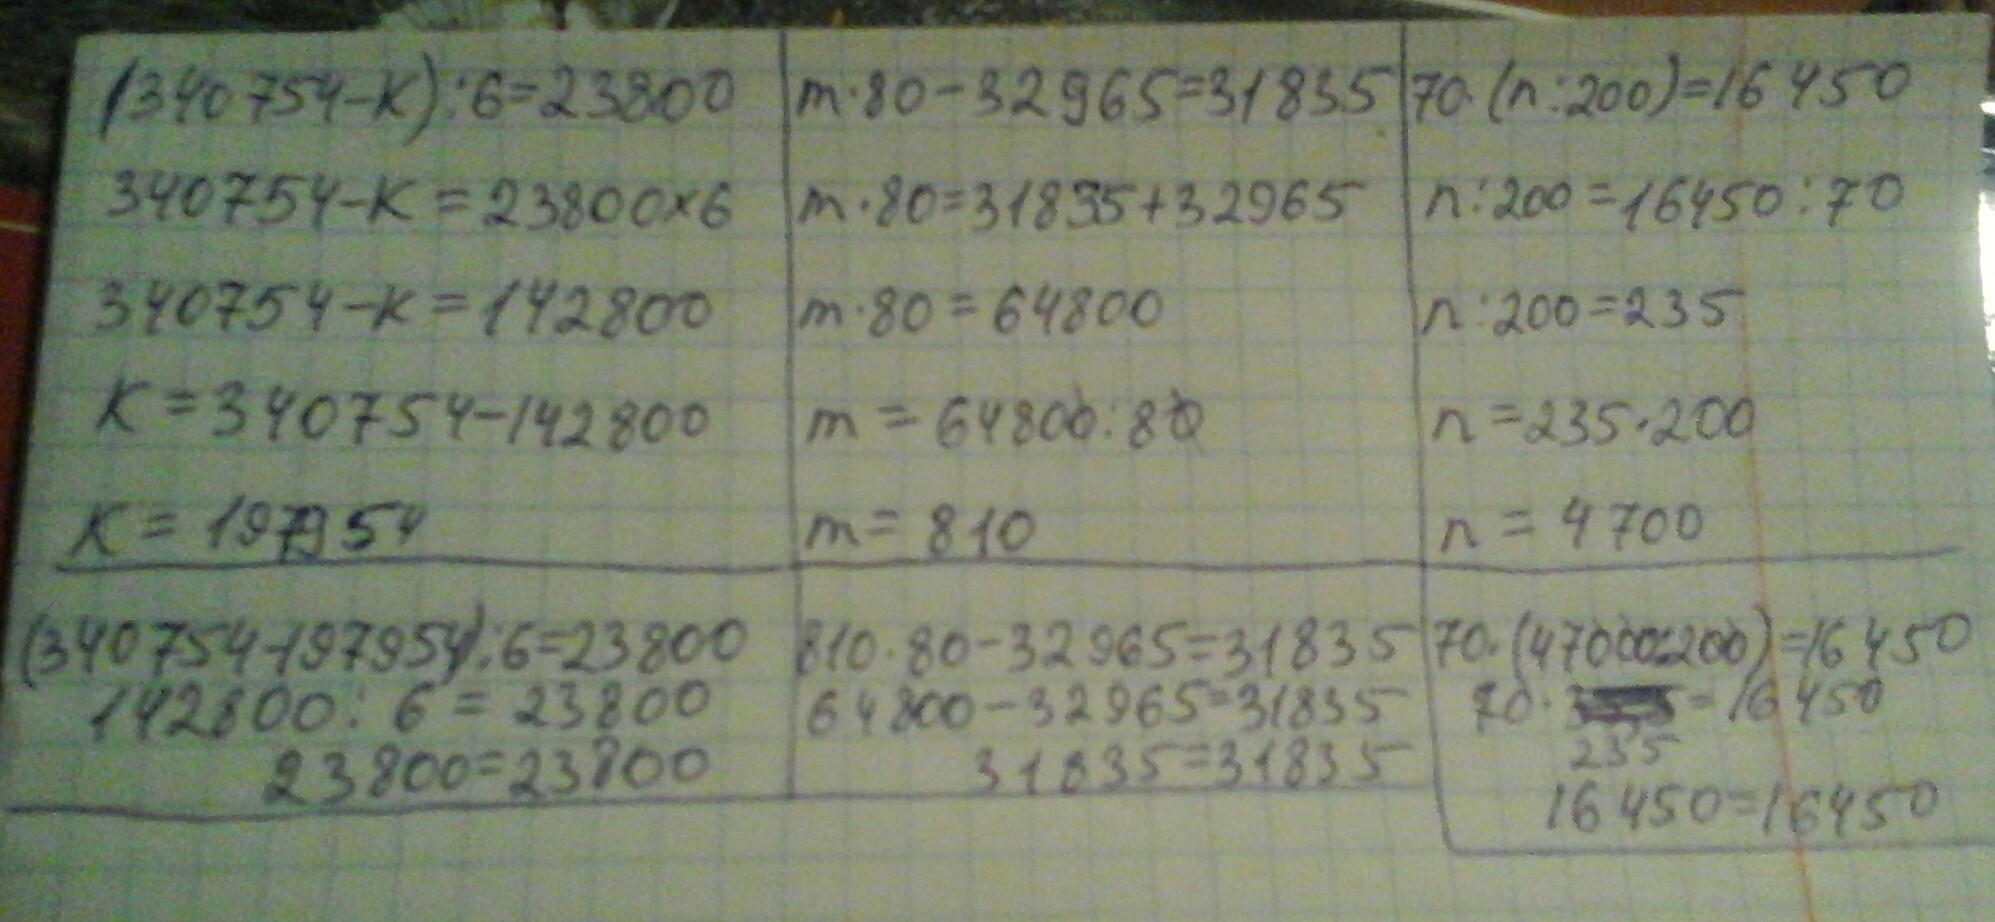 (340754-К):6=23800
340754-К=23800×6
340754-К=142800
К=340754-142800
К=197954
(340754-197954):6=23800
142800:6=23800
23800=23800
m·80-32965=31835
m·80=31835+32965
m·80=64800
m=64800:80
m=810
810·80-32965=31835
64800-32965=31835
31835=31835
70·(n:200)=16450
n:200=16450:70
n:200=235
n=235·200
n=4700
70·(47000:200)=16450
70· =16450
235
16450=16450